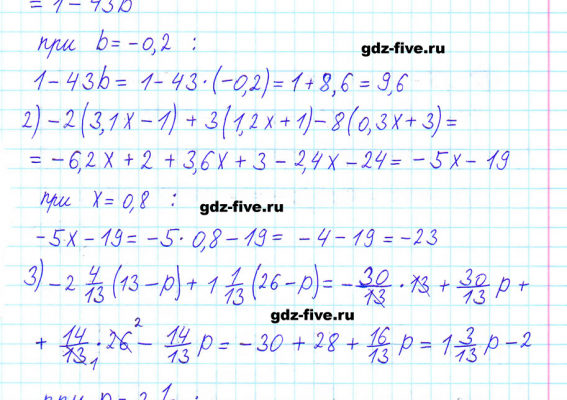 = 1 - 43b
при b = -0,2 : gdz-five.ru
1 - 43b = 1 - 43·(-0,2) = 1 + 8,6 = 9,6
2) -2(3,1x - 1) + 3(1,2x + 1) - 8(0,3x + 3) =
= -6,2x + 2 + 3,6x + 3 - 2,4x - 24 = -5x - 19
при x = 0,8 : gdz-five.ru
-5x - 19 = -5·0,8 - 19 = -4 - 19 = -23
3) -2 4/13 (13 - p) + 1 1/13 (26 - p) = - 30/13 · 13 + 30/13 p +
gdz-five.ru
+ 14/13 1 · 26 2 - 14/13 p = -30 + 28 + 16/13 p = 1 3/13 p - 2